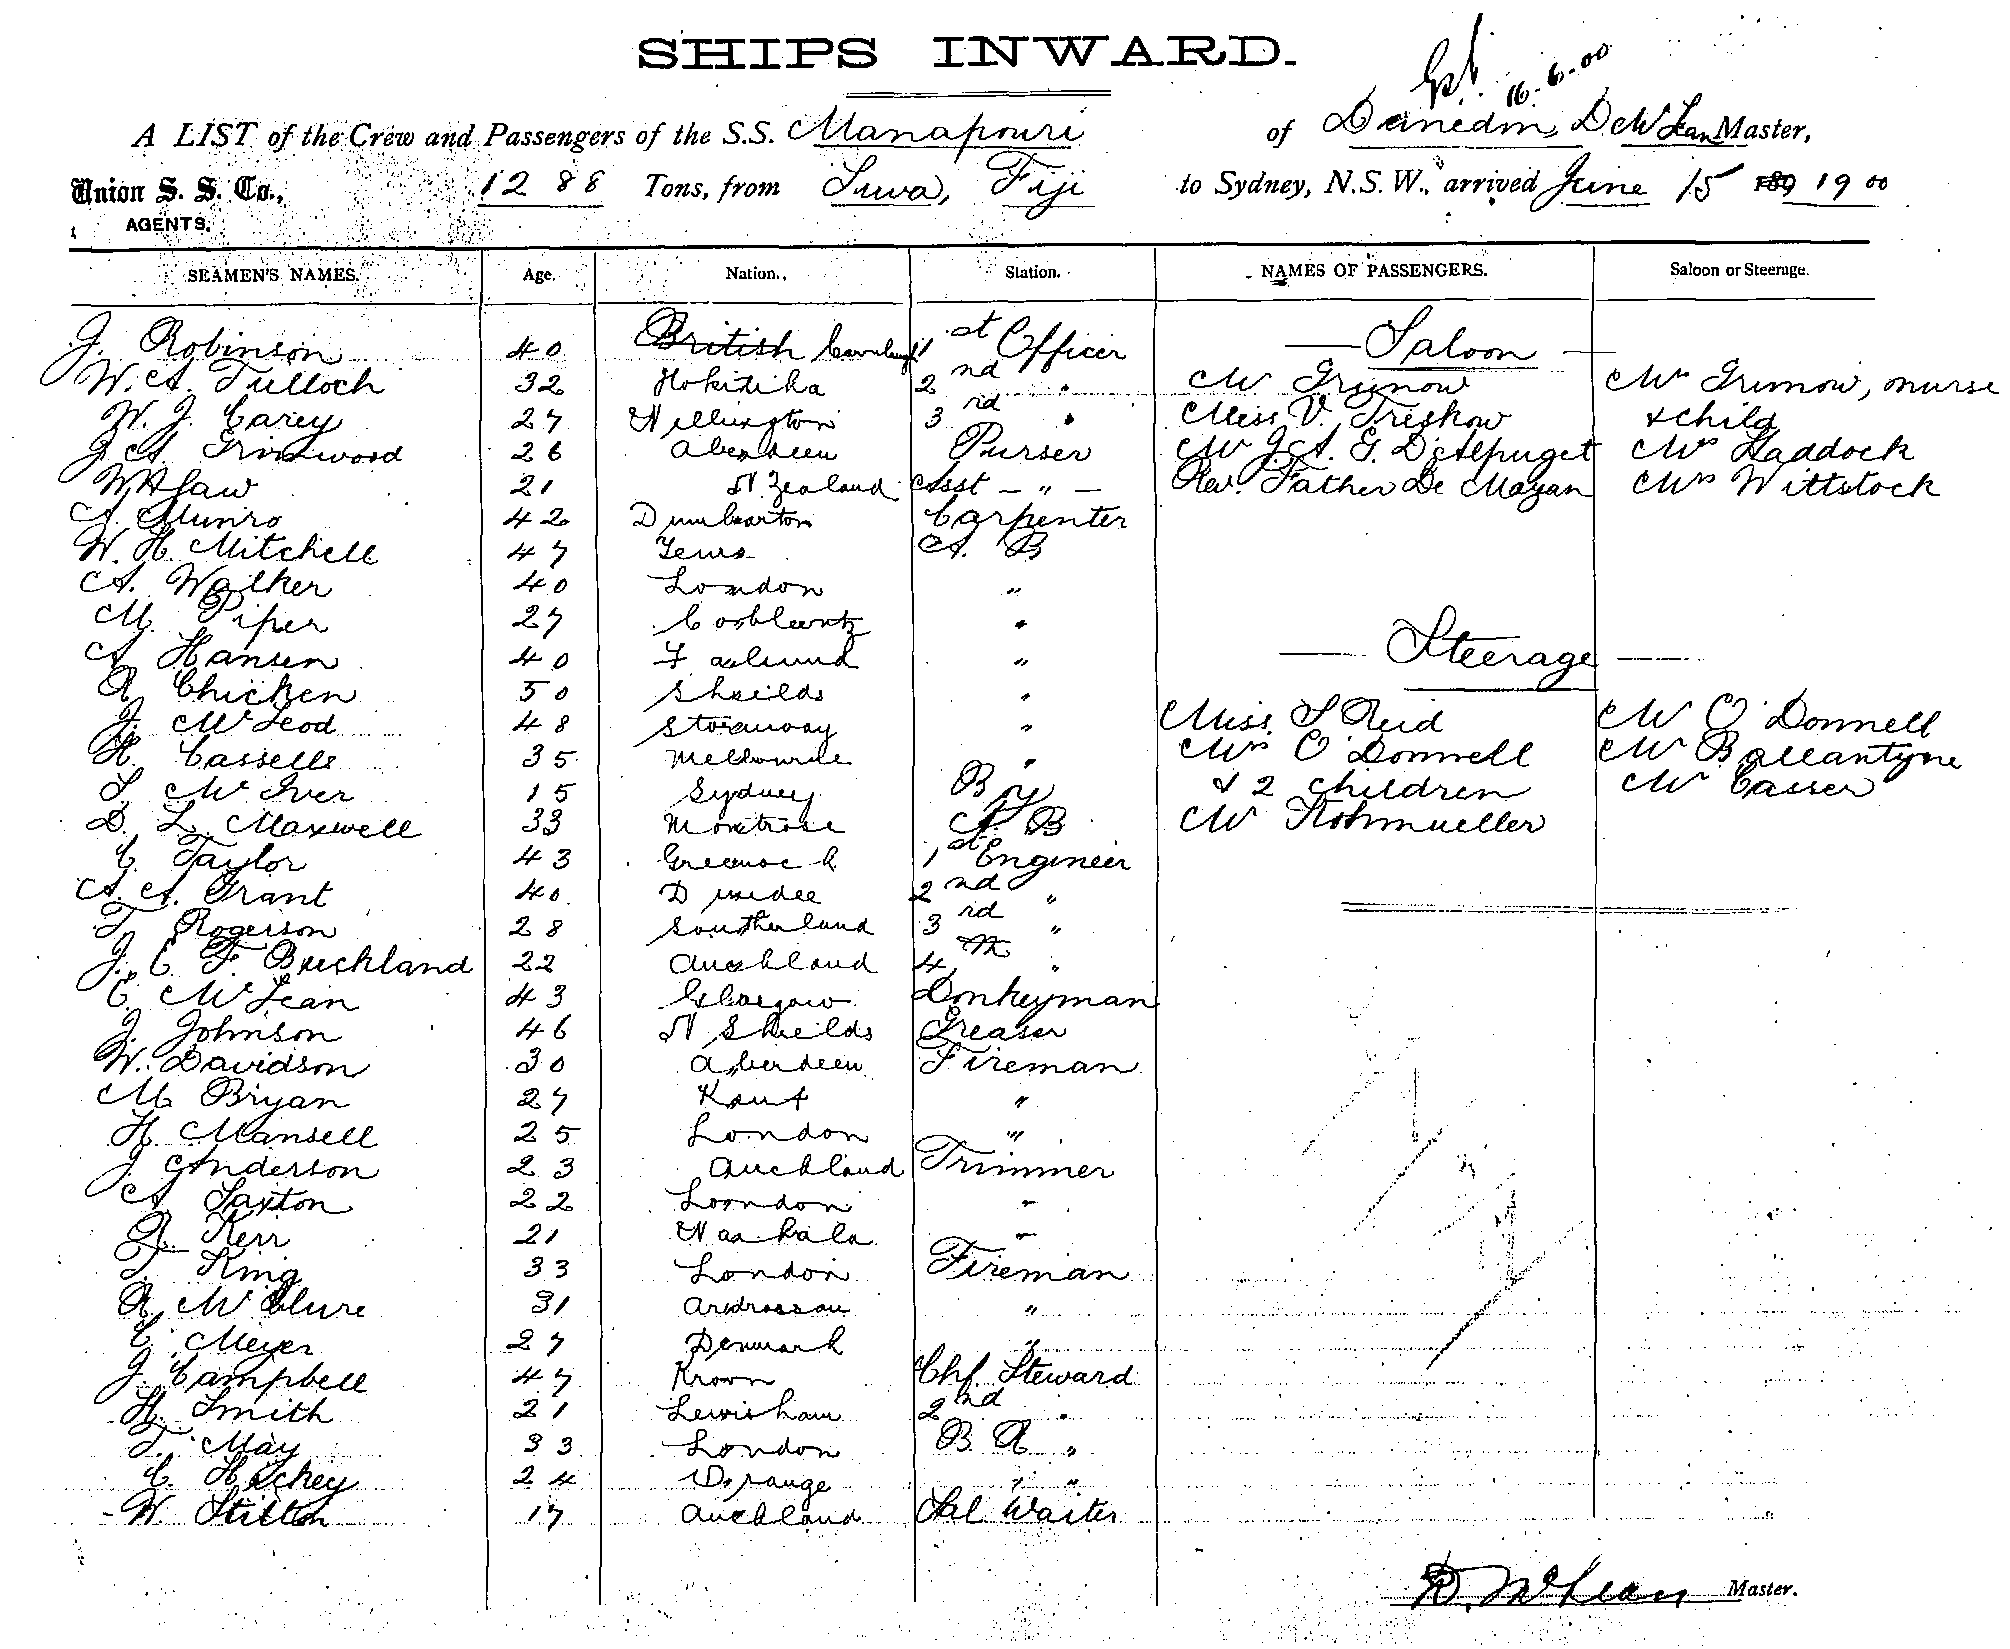 SHIPS INWARD.
16.6.00
A LIST of the Crew and Passengers of the S.S. Manapouri of Dunedin, D McLean Master,
Union S. S. Co., 1288 Tons, from Suva, Fiji to Sydney, N.S.W., arrived June 15 189 1900
AGENTS.
SEAMEN'S NAMES. Age. Nation. Station. NAMES OF PASSENGERS. Saloon or Steerage.
J. Robinson 40 British 1st Officer — Saloon —
W. A. Tulloch 32 Hokitika 2nd " Mr Grunow Mrs Grunow, nurse
W. J. Carey 27 Wellington 3rd " Miss V. Treskow & child
J. A. Grinwood 26 Aberdeen Purser Mr J. A. G. D'Alpuget Mrs Haddock
W H Law 21 N Zealand Asst — " — Rev. Father De Mayan Mrs Wittstock
A. Munro 42 Dumbarton Carpenter
W. H. Mitchell 47 A. B
A. Walker 40 London "
M. Piper 27 "
A Hansen 40 " — Steerage —
R Chicken 50 Sheilds "
J. McLeod 48 Stornoway " Miss S Reid Mr O'Donnell
H. Casselle 35 Melbourne " Mrs O'Donnell Mr Ballantyne
S. McIver 15 Sydney Boy & 2 children Mr Casser
D. L. Maxwell 33 Montrose A B Mr Kohmueller
C. Taylor 43 Greenock 1st Engineer
A. A. Grant 40 Dundee 2nd "
T Rogerson 28 Southerland 3rd "
J. C. F. Buckland 22 Auckland 4th "
C. McLean 43 Glasgow Donkeyman
J. Johnson 46 N Shields Greaser
W. Davidson 30 Aberdeen Fireman
M Bryan 27 Kent "
H. Mansell 25 London "
J Anderson 23 Auckland Trimmer
A Saxton 22 London "
R. Kerr 21 "
T. King 33 London Fireman
R McClure 31 Ardrossan "
C. Meyer 27 Denmark "
J. Campbell 47 Chf. Steward
H. Smith 21 Lewisham 2nd "
T. May 33 London B. R "
C. Hickey 24 " "
W Stilton 17 Auckland Sal Waiter
D. McLean Master.